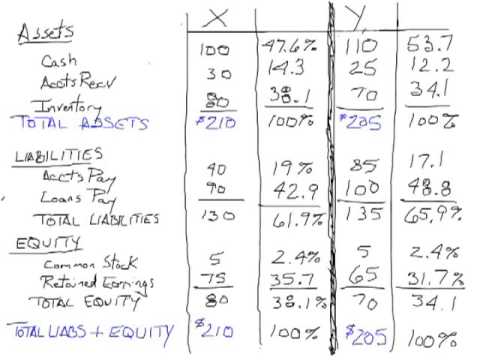 X Y
Assets
Cash 100 47.6% 110 53.7
Accts Recv 30 14.3 25 12.2
Inventory 80 38.1 70 34.1
TOTAL ASSETS $210 100% $205 100%
LIABILITIES
Accts Pay 40 19% 85 17.1
Loans Pay 90 42.9 100 48.8
TOTAL LIABILITIES 130 61.9% 135 65.9%
EQUITY
Common Stock 5 2.4% 5 2.4%
Retained Earnings 75 35.7 65 31.7%
TOTAL EQUITY 80 38.1% 70 34.1
TOTAL LIABS + EQUITY $210 100% $205 100%